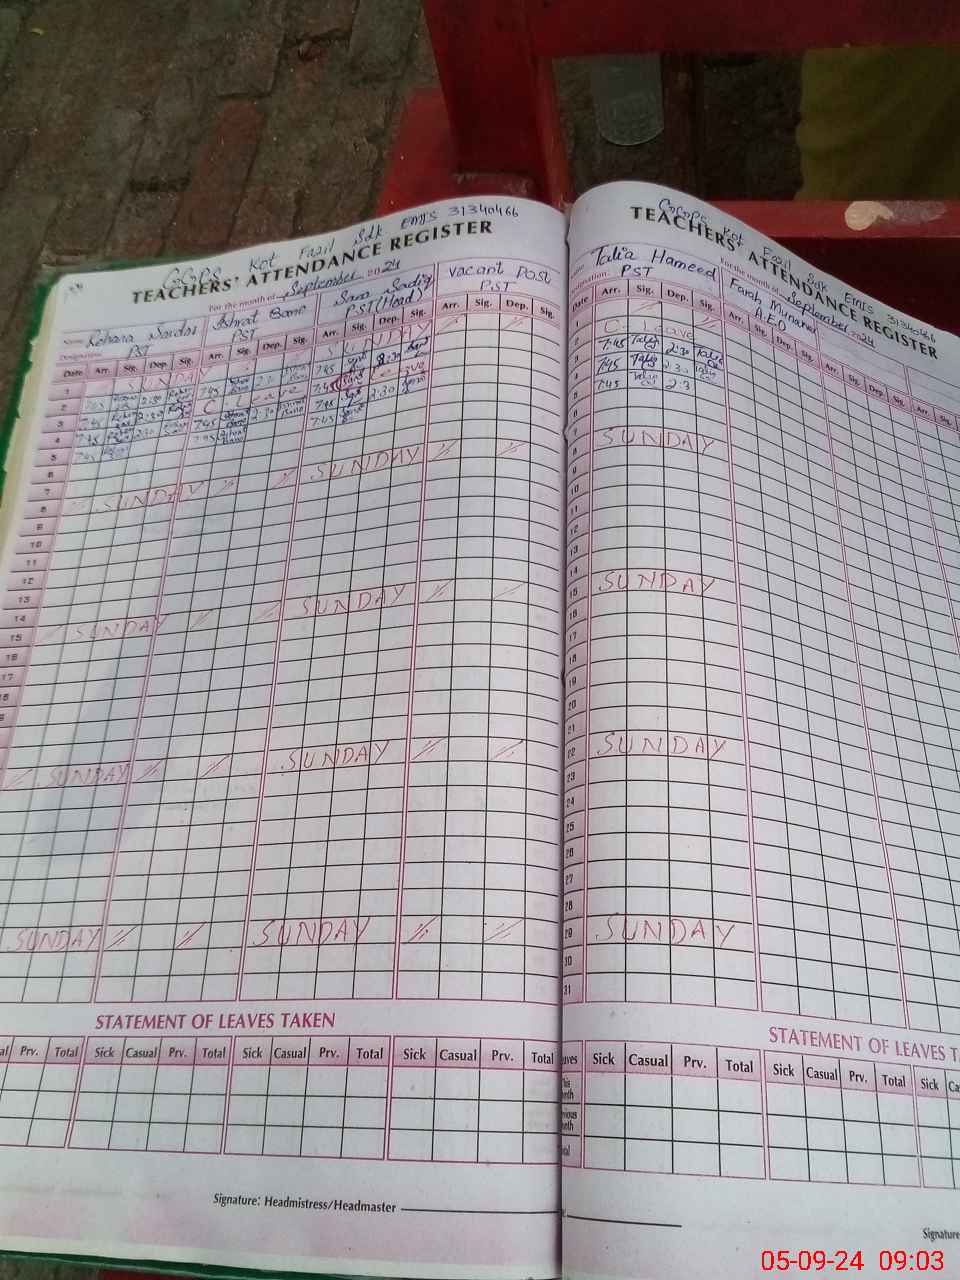 GGPS Kot Fazil Sdk EMIS 31340466
TEACHERS' ATTENDANCE REGISTER
For the month of September 2024
Name Rehana Sardar Ishrat Bano Sara Sadiq vacant Post
Designation PST PST PST(Head) PST
Date Arr. Sig. Dep. Sig. Arr. Sig. Dep. Sig. Arr. Sig. Dep. Sig. Arr. Sig. Dep. Sig.
1 SUNDAY SUNDAY
2 7:45 2:30 7:45 2:30 7:45 2:30
3 7:45 2:30 C Leave 7:45 Leave
4 7:45 2:30 7:45 2:30 7:45 2:30
5 7:45 7:45 7:45
6
7
8 SUNDAY SUNDAY
9
10
11
12
13
14
15 SUNDAY SUNDAY
16
17
18
SUNDAY SUNDAY
SUNDAY SUNDAY
STATEMENT OF LEAVES TAKEN
Prv. Total Sick Casual Prv. Total Sick Casual Prv. Total Sick Casual Prv. Total
Signature: Headmistress/Headmaster
GGPS Kot Fazil Sdk EMIS 31340466
TEACHERS' ATTENDANCE REGISTER
For the month of September 2024
Talia Hameed Farah Munawer
Designation: PST A.E.O
Arr. Sig. Dep. Sig. Arr. Sig. Dep. Sig. Arr. Sig. Dep. Sig. Arr. Sig.
1
2 C. Leave
3 7:45 Talia 2:30 Talia
4 7:45 Talia 2:30 Talia
5 7:45 Talia 2:3
7
8 SUNDAY
9
10
11
12
13
14
15 SUNDAY
16
17
18
19
20
21
22 SUNDAY
23
24
25
26
27
28
29 SUNDAY
30
31
STATEMENT OF LEAVES TA
Leaves Sick Casual Prv. Total Sick Casual Prv. Total Sick Ca
This Month
Previous Month
Total
Signature
05-09-24 09:03